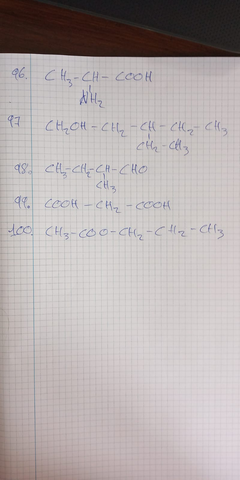 96. CH3-CH-COOH
NH2
97 CH2OH-CH2-CH-CH2-CH3
CH2-CH3
98. CH3-CH2-CH-CHO
CH3
99. COOH-CH2-COOH
100. CH3-COO-CH2-CH2-CH3